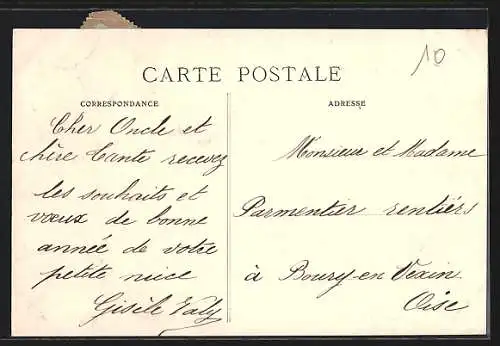 10
CARTE POSTALE
CORRESPONDANCE
Cher Oncle et
chère Tante recevez
les souhaits et
vœux de bonne
année de votre
petite nièce
Gisèle Valy
ADRESSE
Monsieur et Madame
Parmentier rentiers
à Boury-en-Vexin
Oise